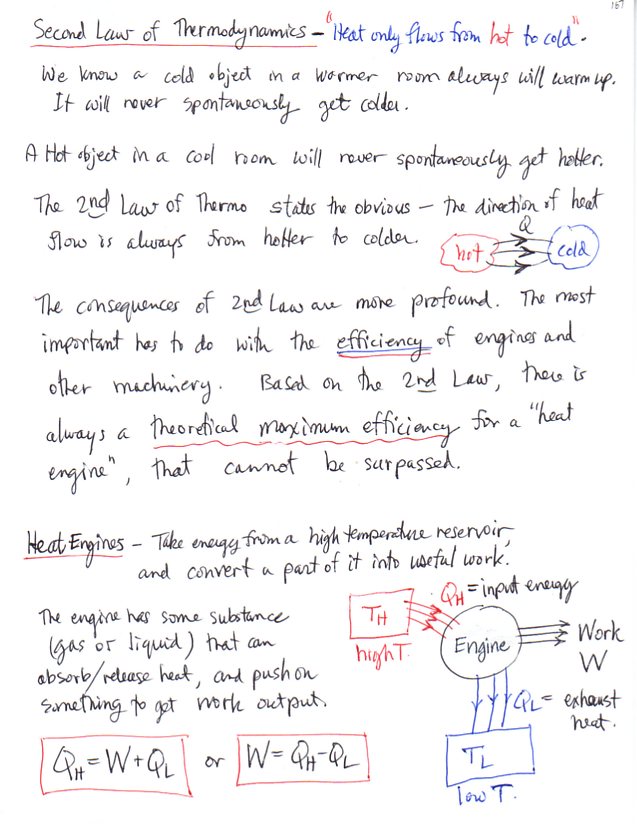 167
Second Law of Thermodynamics - "Heat only flows from hot to cold".
We know a cold object in a warmer room always will warm up.
It will never spontaneously get colder.
A Hot object in a cool room will never spontaneously get hotter.
The 2nd Law of Thermo states the obvious - the direction of heat
flow is always from hotter to colder.
Q
hot
cold
The consequences of 2nd Law are more profound. The most
important has to do with the efficiency of engines and
other machinery. Based on the 2nd Law, there is
always a theoretical maximum efficiency for a "heat
engine", that cannot be surpassed.
Heat Engines - Take energy from a high temperature reservoir,
and convert a part of it into useful work.
The engine has some substance
(gas or liquid) that can
absorb/release heat, and push on
something to get work output.
T_H
high T.
Q_H = input energy
Engine
Work
W
Q_L = exhaust
heat.
T_L
low T.
Q_H = W + Q_L or W = Q_H - Q_L